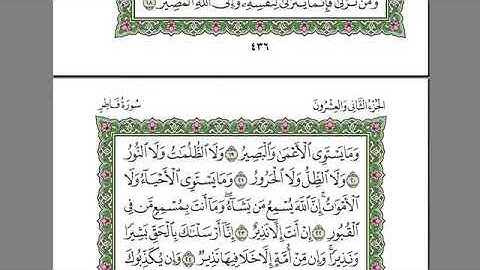 وَمَن تَزَكَّىٰ فَإِنَّمَا يَتَزَكَّىٰ لِنَفْسِهِۦ وَإِلَى ٱللَّهِ ٱلْمَصِيرُ ١٨
٤٣٦
الجُزْءُ الثَّانِي وَالعِشْرُونَ
سُورَةُ فَاطِرٍ
وَمَا يَسْتَوِى ٱلْأَعْمَىٰ وَٱلْبَصِيرُ ١٩ وَلَا ٱلظُّلُمَٰتُ وَلَا ٱلنُّورُ
٢٠ وَلَا ٱلظِّلُّ وَلَا ٱلْحَرُورُ ٢١ وَمَا يَسْتَوِى ٱلْأَحْيَآءُ وَلَا
ٱلْأَمْوَٰتُ ۚ إِنَّ ٱللَّهَ يُسْمِعُ مَن يَشَآءُ ۖ وَمَآ أَنتَ بِمُسْمِعٍ مَّن فِى
ٱلْقُبُورِ ٢٢ إِنْ أَنتَ إِلَّا نَذِيرٌ ٢٣ إِنَّآ أَرْسَلْنَٰكَ بِٱلْحَقِّ بَشِيرًا
وَنَذِيرًا ۚ وَإِن مِّنْ أُمَّةٍ إِلَّا خَلَا فِيهَا نَذِيرٌ ٢٤ وَإِن يُكَذِّبُوكَ